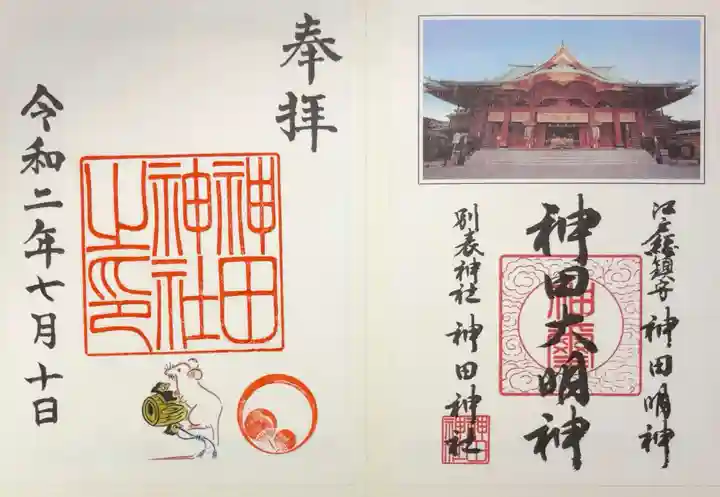 江戸總鎮守 神田明神
神田大明神
別表神社 神田神社
神田神社
奉拝
神田
神社
之印
令和二年七月十日